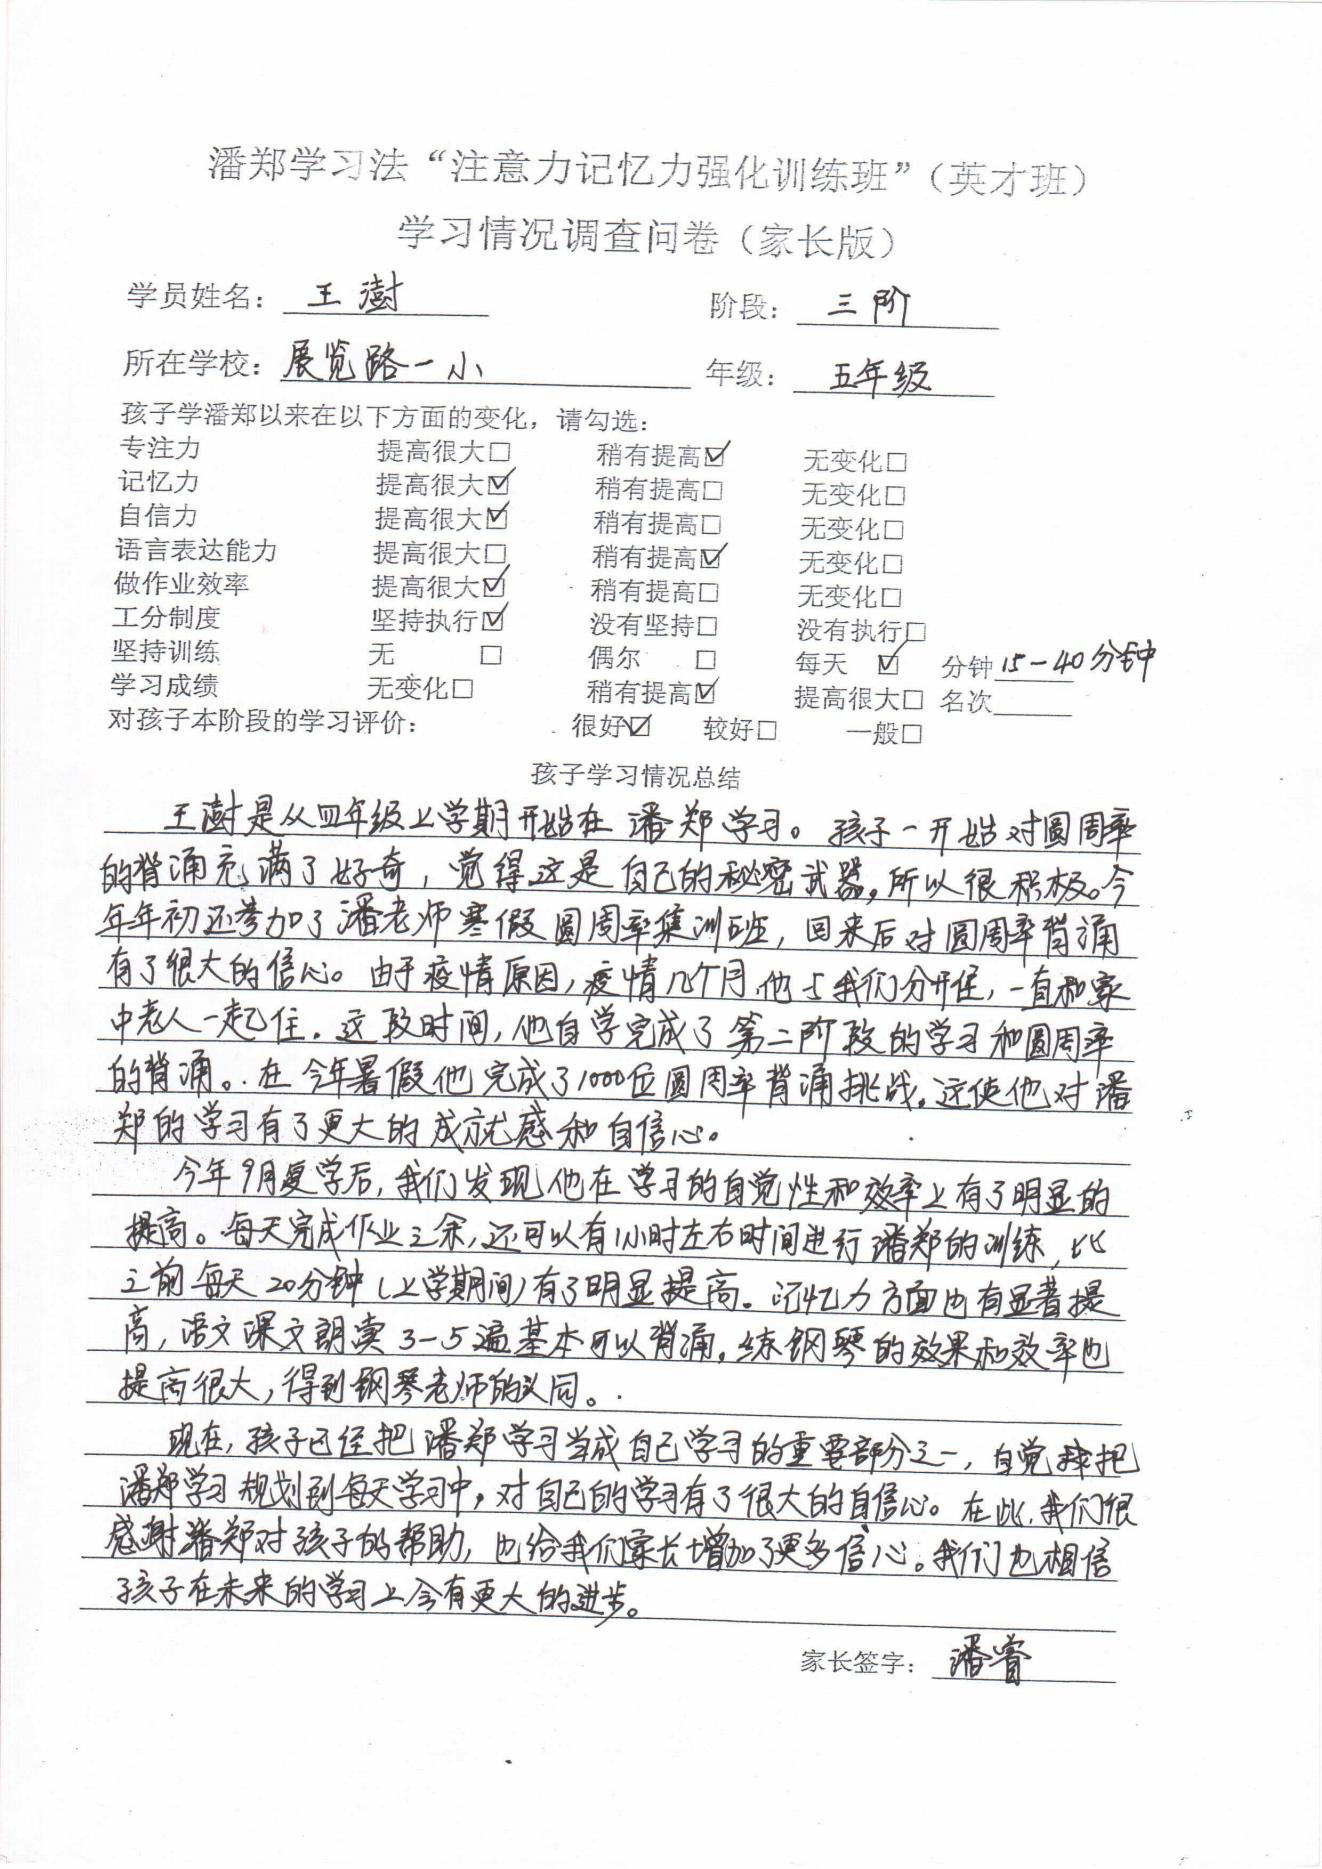 潘郑学习法“注意力记忆力强化训练班”（英才班）
学习情况调查问卷（家长版）
学员姓名： 王澍 阶段： 三阶
所在学校： 展览路一小 年级： 五年级
孩子学潘郑以来在以下方面的变化，请勾选：
专注力 提高很大□ 稍有提高☑ 无变化□
记忆力 提高很大☑ 稍有提高□ 无变化□
自信力 提高很大☑ 稍有提高□ 无变化□
语言表达能力 提高很大□ 稍有提高☑ 无变化□
做作业效率 提高很大☑ 稍有提高□ 无变化□
工分制度 坚持执行☑ 没有坚持□ 没有执行□
坚持训练 无 □ 偶尔 □ 每天 ☑ 分钟15-40分钟
学习成绩 无变化□ 稍有提高☑ 提高很大□ 名次
对孩子本阶段的学习评价： 很好☑ 较好□ 一般□
孩子学习情况总结
王澍是从四年级上学期开始在潘郑学习。孩子一开始对圆周率
的背诵充满了好奇，觉得这是自己的秘密武器，所以很积极。今
年年初还参加了潘老师寒假圆周率集训班，回来后对圆周率背诵
有了很大的信心。由于疫情原因，疫情几个月他与我们分开住，一直和家
中老人一起住。这段时间，他自学完成了第二阶段的学习和圆周率
的背诵。在今年暑假他完成了1000位圆周率背诵挑战，这使他对潘
郑的学习有了更大的成就感和自信心。
今年9月复学后，我们发现他在学习的自觉性和效率上有了明显的
提高。每天完成作业之余，还可以有1小时左右时间进行潘郑的训练，比
之前每天20分钟（上学期间）有了明显提高。记忆力方面也有显著提
高，语文课文朗读3-5遍基本可以背诵，练钢琴的效果和效率也
提高很大，得到钢琴老师的认同。
现在，孩子已经把潘郑学习当成自己学习的重要部分之一，自觉把
潘郑学习规划到每天学习中，对自己的学习有了很大的自信心。在此，我们很
感谢潘郑对孩子的帮助，也给我们家长增加了更多信心。我们也相信
孩子在未来的学习上会有更大的进步。
家长签字： 潘